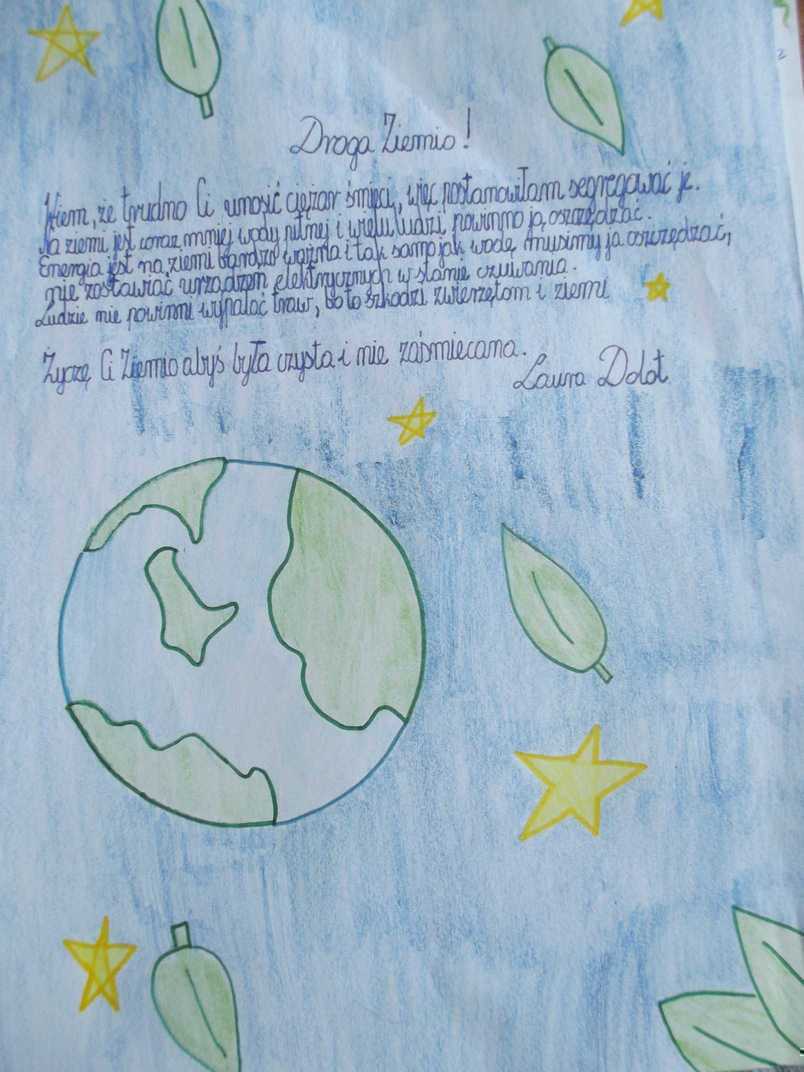 Droga Ziemio!
Wiem, że trudno Ci unosić ciężar śmieci, więc postanowiłam segregować je.
Na ziemi jest coraz mniej wody pitnej i wielu ludzi powinno ją oszczędzać.
Energia jest na ziemi bardzo ważna i tak samo jak wodę musimy ją oszczędzać,
nie zostawiać urządzeń elektrycznych w stanie czuwania.
Ludzie nie powinni wypalać traw, bo to szkodzi zwierzętom i ziemi
Życzę Ci Ziemio abyś była czysta i nie zaśmiecana.
Laura Dolot